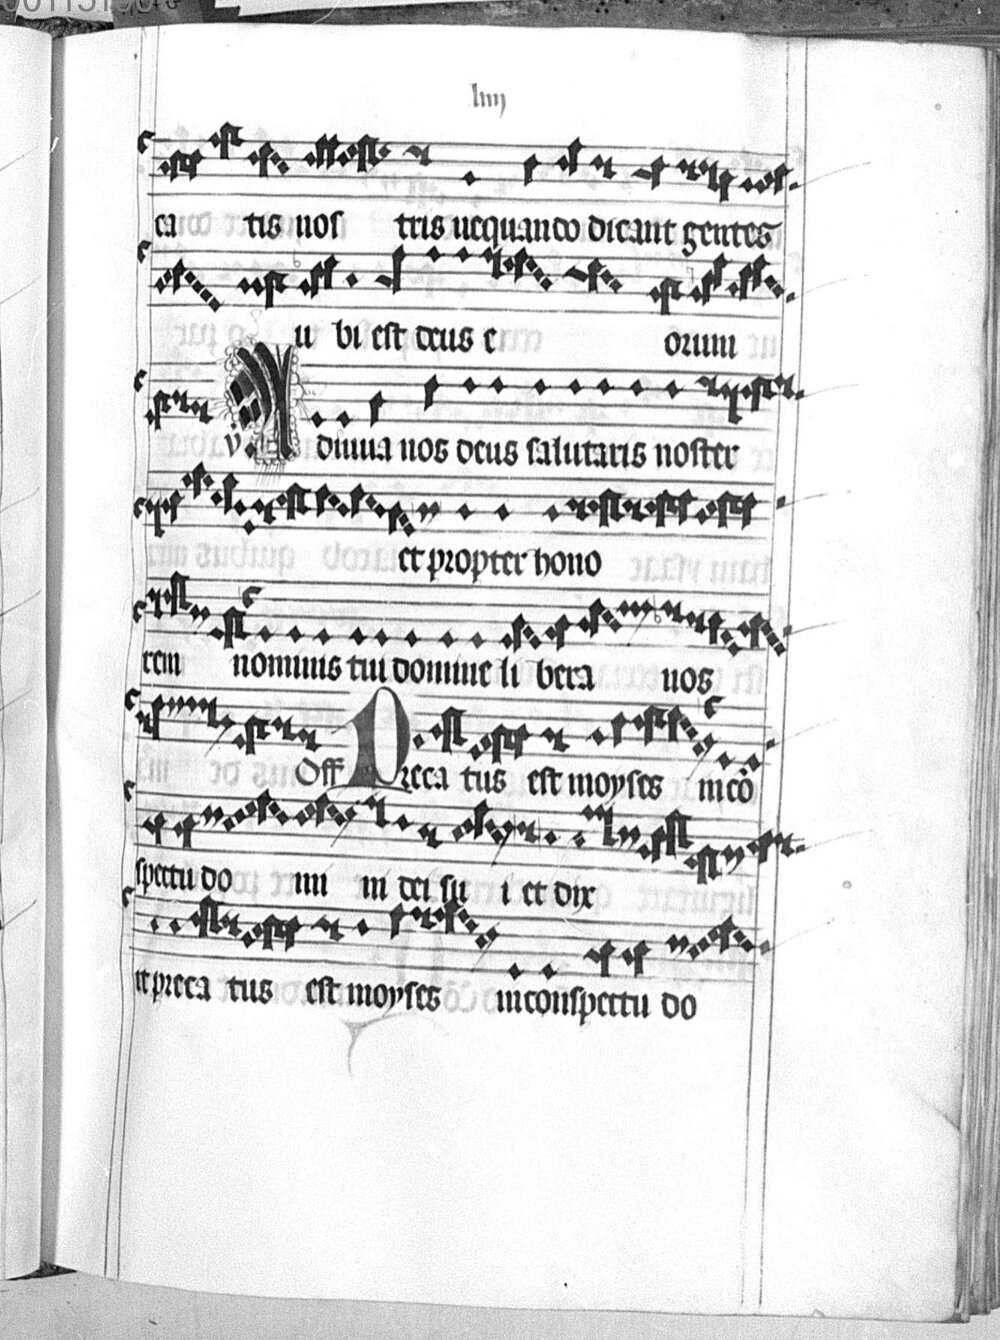 liiij
ca tis nos tris nequando dicant gentes
u bi est deus e orum
v. Adiuua nos deus salutaris noster
et propter hono
rem nominis tui domine li bera nos
Off Preca tus est moyses in cō
spectu do mi ni dei su i et dix
it preca tus est moyses in conspectu do